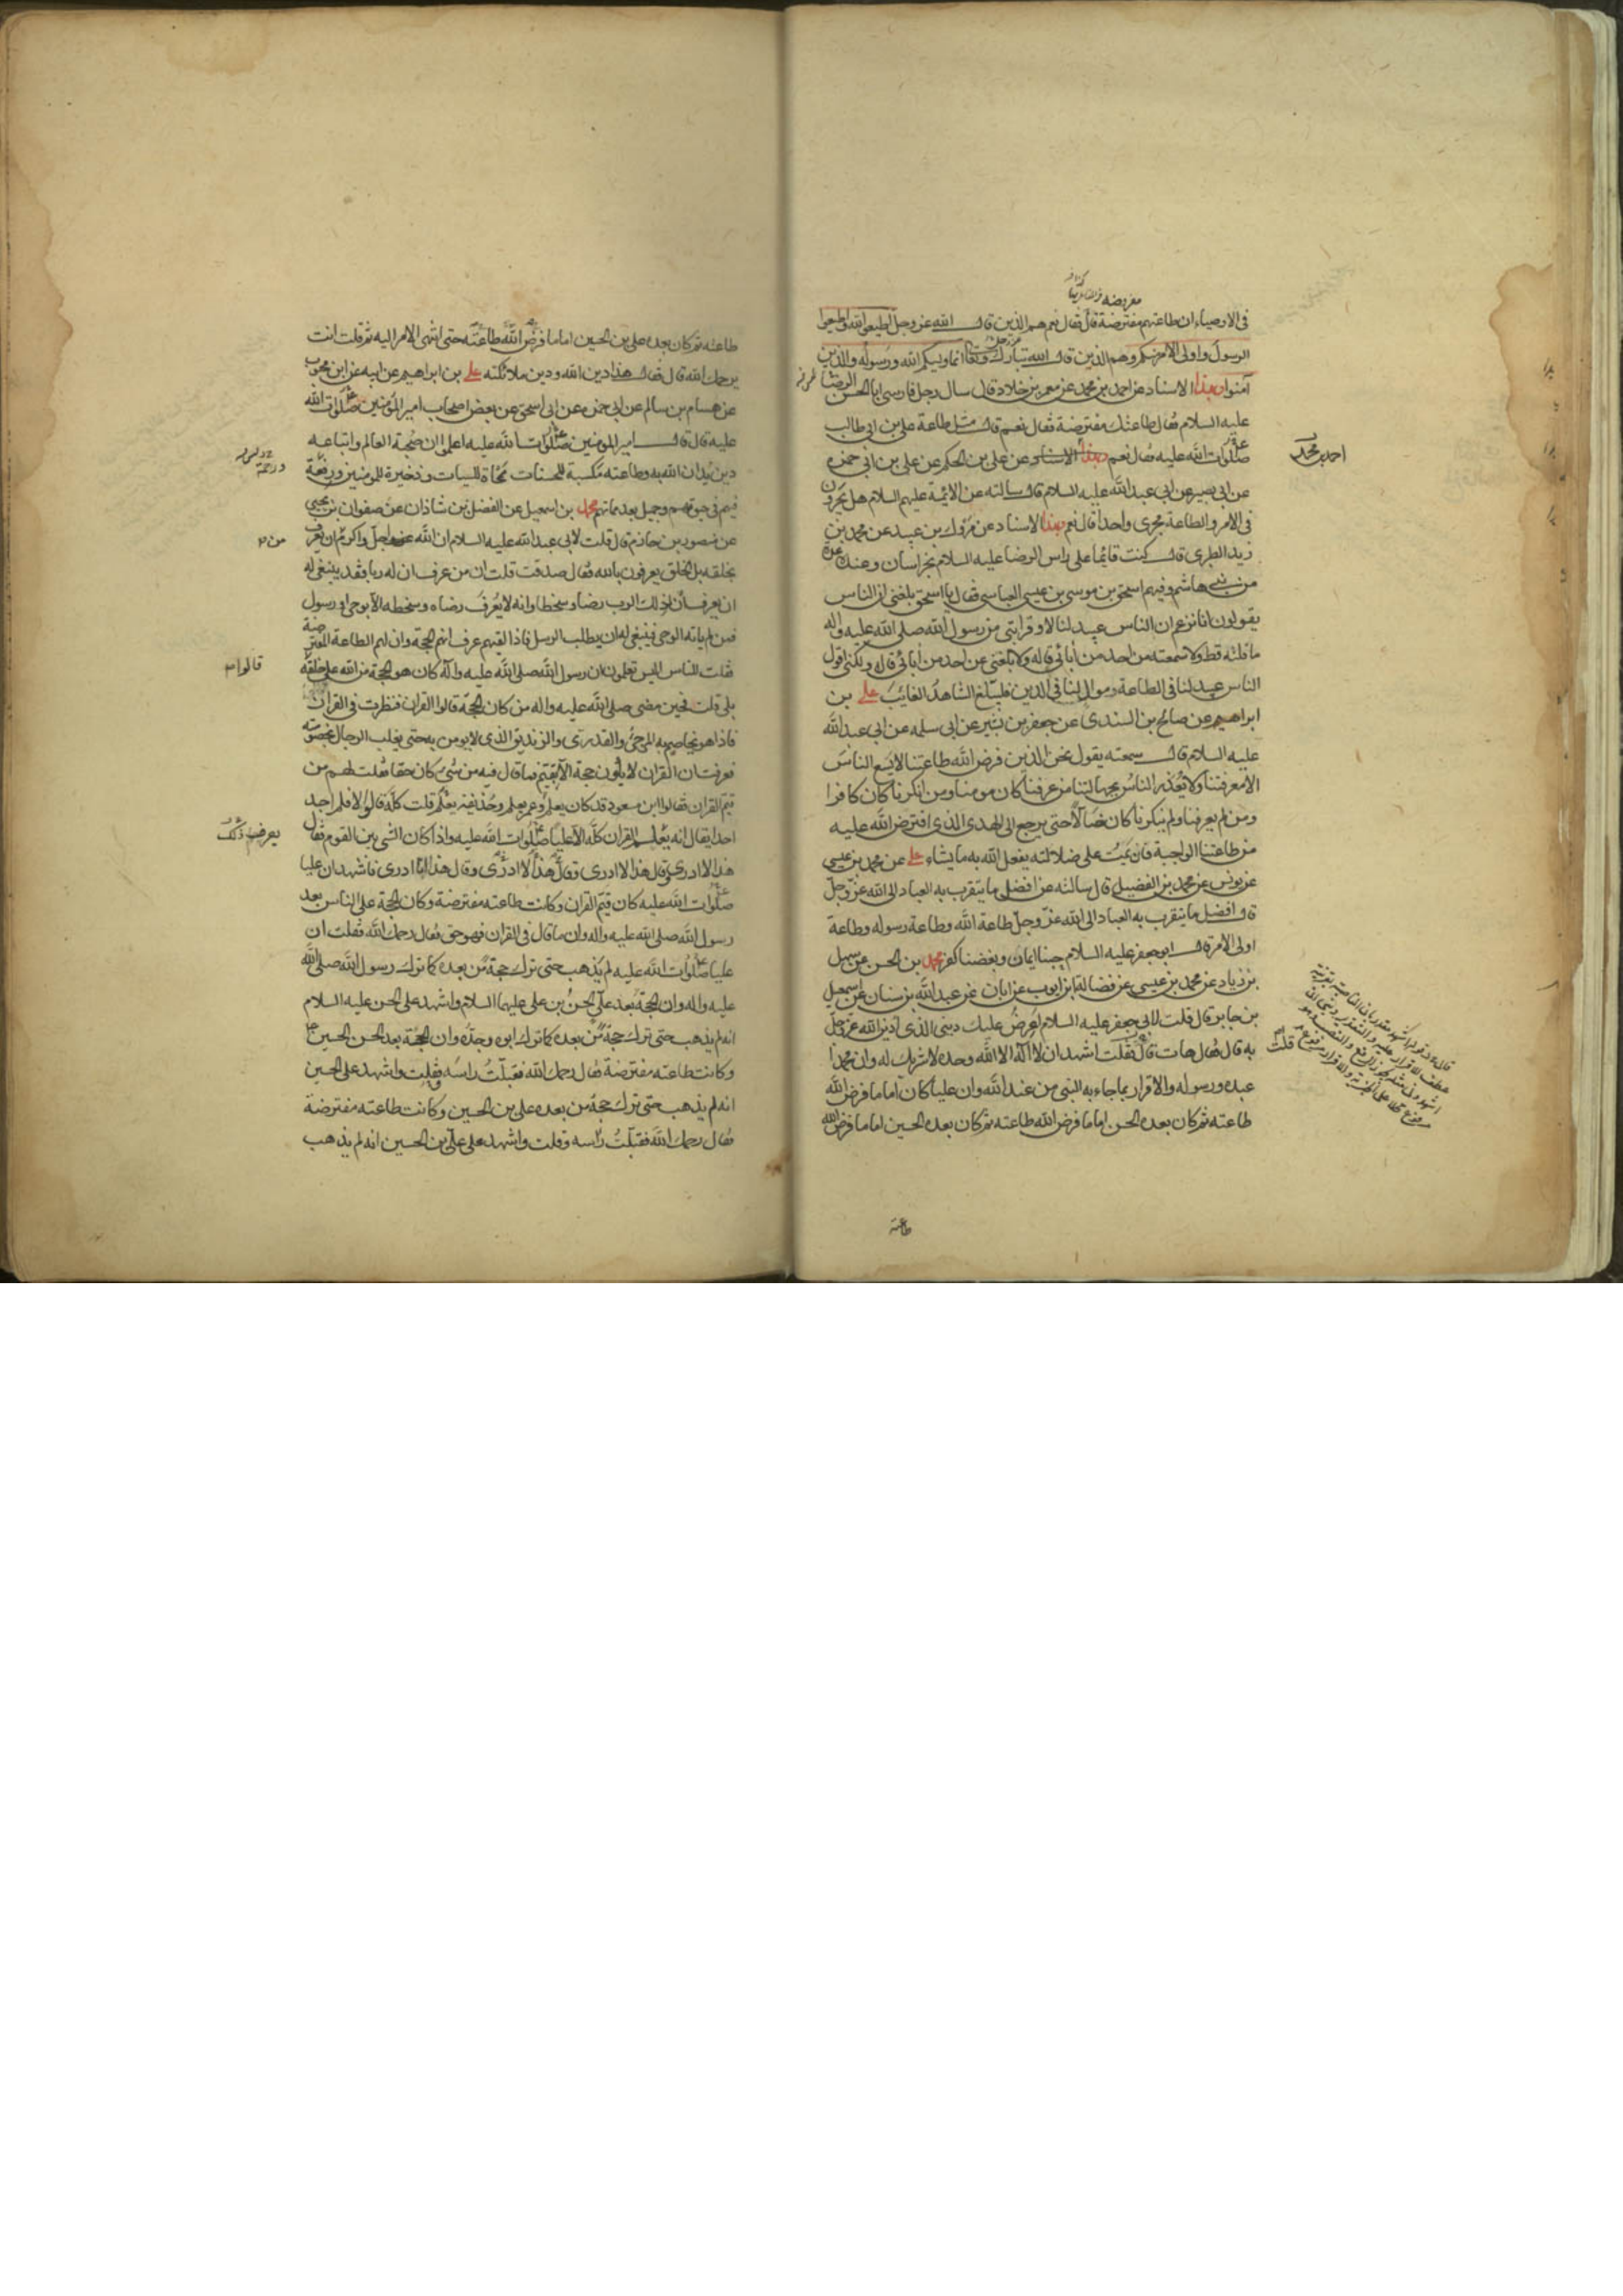 في الاوصياء ان طاعتهم مفترضة قال فقال نعم هم الذين قال الله عز وجل اطيعوا الله واطيعوا
الرسول واولى الامر منكم وهم الذين قال الله تبارك وتعالى انما وليكم الله ورسوله والذين
آمنوا وبهذا الاسناد عن احمد بن محمد عن معمر بن خلاد قال سال رجل فارسي ابا الحسن الرضا
عليه السلام فقال طاعتك مفترضة فقال نعم قال مثل طاعة علي بن ابي طالب
صلوات الله عليه فقال نعم وبهذا الاسناد عن علي بن الحكم عن علي بن ابي حمزه
احمد بن محمد
عن ابي بصير عن ابي عبد الله عليه السلام قال سالته عن الائمة عليهم السلام هل يجرون
في الامر والطاعة مجرى واحدا قال نعم وبهذا الاسناد عن مروك بن عبيد عن محمد بن
زيد الطبري قال كنت قائما على راس الرضا عليه السلام بخراسان وعنده عدة
من بني هاشم وفيهم اسحق بن موسى بن عيسى العباسي فقال يا اسحق بلغني ان الناس
يقولون انا نزعم ان الناس عبيد لنا لا وقرابتي من رسول الله صلى الله عليه واله
ما قلته قط ولا سمعته من احد من آبائي قاله ولا بلغني عن احد من آبائي قاله ولكني اقول
الناس عبيد لنا في الطاعة وموال لنا في الدين فليبلغ الشاهد الغائب علي بن
ابراهيم عن صالح بن السندي عن جعفر بن بشير عن ابي سلمه عن ابي عبد الله
عليه السلام قال سمعته يقول نحن الذين فرض الله طاعتنا لا يسع الناس
الا معرفتنا ولا يعذر الناس بجهالتنا من عرفنا كان مومنا ومن انكرنا كان كافرا
ومن لم يعرفنا ولم ينكرنا كان ضالا حتى يرجع الى الهدى الذي افترض الله عليه
من طاعتنا الواجبة فان يمت على ضلالته يفعل الله به ما يشاء علي عن محمد بن عيسى
عن يونس عن محمد بن الفضيل قال سالته عن افضل ما يتقرب به العباد الى الله عز وجل
قال افضل ما يتقرب به العباد الى الله عز وجل طاعة الله وطاعة رسوله وطاعة
اولى الامر قال ابو جعفر عليه السلام حبنا ايمان وبغضنا كفر محمد بن الحسن عن سهل
بن زياد عن محمد بن عيسى عن فضالة بن ايوب عن ابان عن عبد الله بن سنان عن اسمعيل
بن جابر قال قلت لابي جعفر عليه السلام اعرض عليك ديني الذي ادين الله عز وجل
به قال فقال هات قال فقلت اشهد ان لا اله الا الله وحده لا شريك له وان محمدا
عبده ورسوله والاقرار بما جاء به النبي من عند الله وان عليا كان اماما فرض الله
طاعته ثم كان بعده الحسن اماما فرض الله طاعته ثم كان بعده الحسين اماما فرض الله
طاعته
طاعته ثم كان بعده علي بن الحسين اماما فرض الله طاعته حتى انتهى الامر اليه ثم قلت انت
يرحمك الله قال فقال هذا دين الله ودين ملائكته علي بن ابراهيم عن ابيه عن ابن محبوب
عن هشام بن سالم عن ابي حمزه عن ابي اسحق عن بعض اصحاب امير المؤمنين صلوات الله
عليه قال قال امير المومنين صلوات الله عليه اعلموا ان صحبة العالم واتباعه
دين يدان الله به وطاعته مكسبة للحسنات ممحاة للسيات وذخيرة للمومنين ورفعة
فيهم في حيوتهم وجميل بعد مماتهم محمد بن اسمعيل عن الفضل بن شاذان عن صفوان بن يحيى
عن منصور بن حازم قال قلت لابي عبد الله عليه السلام ان الله اجل واكرم من ان يعرف
بخلقه بل الخلق يعرفون بالله فقال صدقت قلت ان من عرف ان له ربا فقد ينبغي له
ان يعرف ان لذلك الرب رضا وسخطا وانه لا يعرف رضاه وسخطه الا بوحي او رسول
فمن لم ياته الوحي فينبغي له ان يطلب الرسل فاذا لقيهم عرف انهم الحجة وان لهم الطاعة المفترضة
فقلت للناس اليس تعلمون ان رسول الله صلى الله عليه وآله كان هو الحجة من الله على خلقه
قالوا
بلى قلت فحين مضى صلى الله عليه واله من كان الحجة قالوا القران فنظرت في القران
فاذا هو يخاصم به المرجئ والقدري والزنديق الذي لا يومن به حتى يغلب الرجال بخصومته
فعرفت ان القران لا يكون حجة الا بقيم فما قال فيه من شئ كان حقا فقلت لهم من
قيم القران فقالوا ابن مسعود قد كان يعلم وعمر يعلم وحذيفة يعلم قلت كله قالوا لا فلم اجد
احدا يقال انه يعلم القران كله الا عليا صلوات الله عليه واذا كان الشئ بين القوم فقال
يعرف ذلك
هذا لا ادري وقال هذا لا ادري وقال هذا لا ادري وقال هذا انا ادري فاشهد ان عليا
صلوات الله عليه كان قيم القران وكانت طاعته مفترضة وكان الحجة على الناس بعد
رسول الله صلى الله عليه واله وان ما قال في القران فهو حق فقال رحمك الله فقلت ان
عليا صلوات الله عليه لم يذهب حتى ترك حجة من بعده كما ترك رسول الله صلى الله
عليه واله وان الحجة بعد علي الحسن بن علي عليهما السلام واشهد على الحسن عليه السلام
انه لم يذهب حتى ترك حجة من بعده كما ترك ابوه وجده وان الحجة بعد الحسن الحسين
وكانت طاعته مفترضة فقال رحمك الله فقبلت راسه وقلت واشهد على الحسين
انه لم يذهب حتى ترك حجة من بعده علي بن الحسين وكانت طاعته مفترضة
فقال رحمك الله فقبلت راسه وقلت واشهد على علي بن الحسين انه لم يذهب